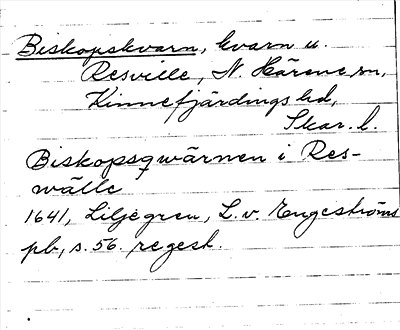 Biskopskvarn, kvarn u.
Resville, N. Härene sn,
Kinnefjärdings hd,
Skar. l.
Biskopsqwärnen i Res-
wälle
1641, Liljegren, L. v. Engeströms
pb, s. 56. regest.